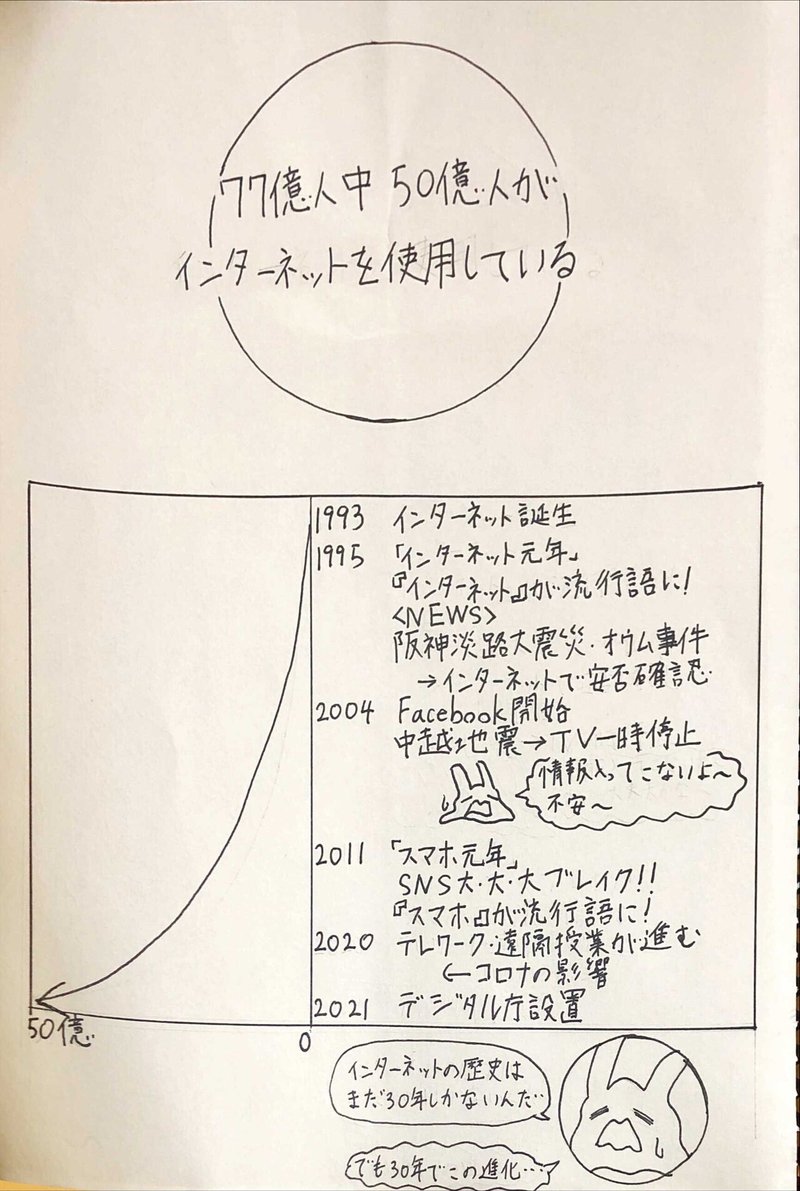 77億人中 50億人が
インターネットを使用している
1993 インターネット誕生
1995 「インターネット元年」
『インターネット』が流行語に!
<NEWS>
阪神淡路大震災・オウム事件
→インターネットで安否確認
2004 Facebook開始
中越地震→TV一時停止
情報入ってこないよ〜
不安〜
2011 「スマホ元年」
SNS大・大・大ブレイク!!
『スマホ』が流行語に!
2020 テレワーク・遠隔授業が進む
←コロナの影響
2021 デジタル庁設置
50億
0
インターネットの歴史は
まだ30年しかないんだ…
でも30年でこの進化…